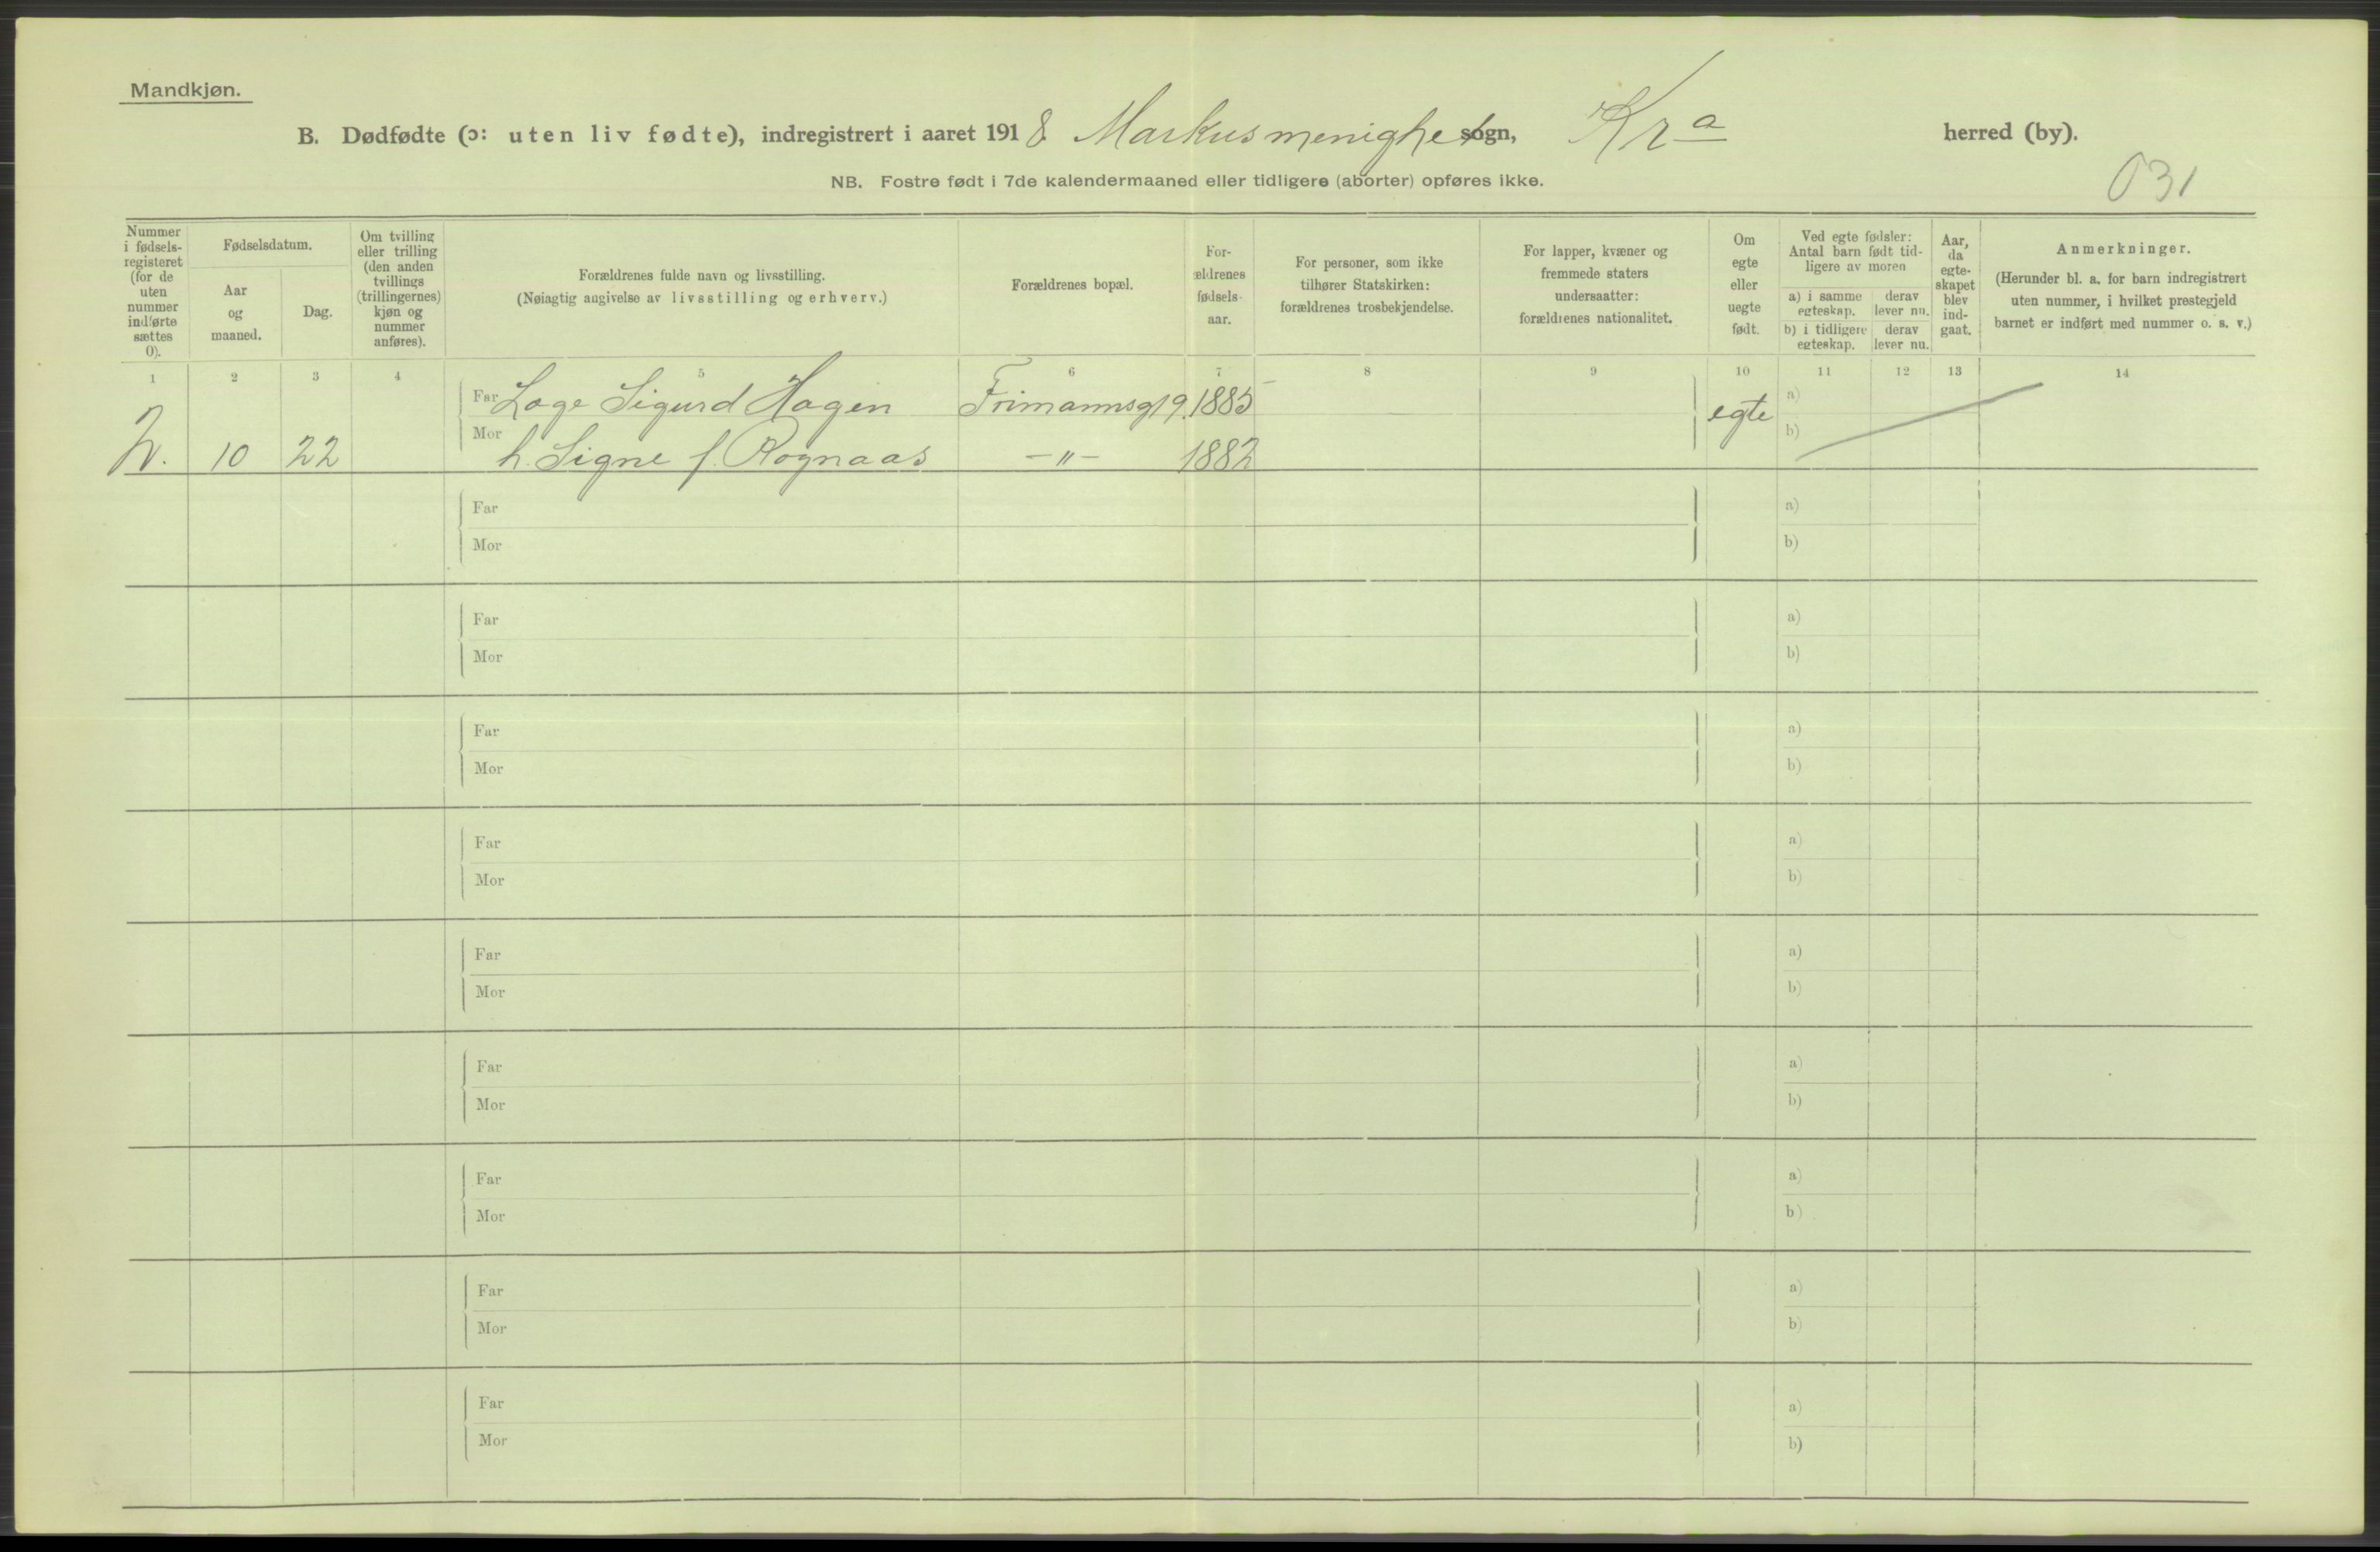 Mandkjøn.
B. Dødfødte (ɔ: uten liv fødte), indregistrert i aaret 1918 Markus menighet sogn, Kra herred (by).
NB. Fostre født i 7de kalendermaaned eller tidligere (aborter) opføres ikke.
031
Nummer
i fødsels-
registeret
(for de
uten
nummer
indførte
sættes
0).
Fødselsdatum.
Aar
og
maaned.
Dag.
Om tvilling
eller trilling
(den anden
tvillings
(trillingernes)
kjøn og
nummer
anføres).
Forældrenes fulde navn og livsstilling.
(Nøiagtig angivelse av livsstilling og erhverv.)
Forældrenes bopæl.
For-
ældrenes
fødsels-
aar.
For personer, som ikke
tilhører Statskirken:
forældrenes trosbekjendelse.
For lapper, kvæner og
fremmede staters
undersaatter:
forældrenes nationalitet.
Om
egte
eller
uegte
født.
Ved egte fødsler:
Antal barn født tid-
ligere av moren
a) i samme
egteskap.
derav
lever nu.
b) i tidligere
egteskap.
derav
lever nu.
Aar,
da
egte-
skapet
blev
ind-
gaat.
Anmerkninger.
(Herunder bl. a. for barn indregistrert
uten nummer, i hvilket prestegjeld
barnet er indført med nummer o. s. v.)
1 2 3 4 5 6 7 8 9 10 11 12 13 14
Far Lage Sigurd Hagen Frimannsg 19. 1885 egte a)
Mor b)
2. 10 22 h. Signe f. Rognaas -"- 1882
Far a)
Mor b)
Far a)
Mor b)
Far a)
Mor b)
Far a)
Mor b)
Far a)
Mor b)
Far a)
Mor b)
Far a)
Mor b)
Far a)
Mor b)
Far a)
Mor b)